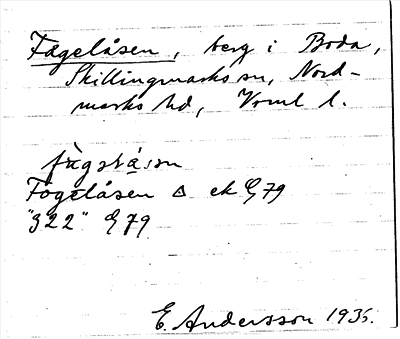 Fågelåsen, berg i Boda,
Skillingmarks sn, Nord-
marks hd, Vrml l.
fùgəlå̀sən
Fogelåsen △ ek G79
"322" G79
E. Andersson 1935.